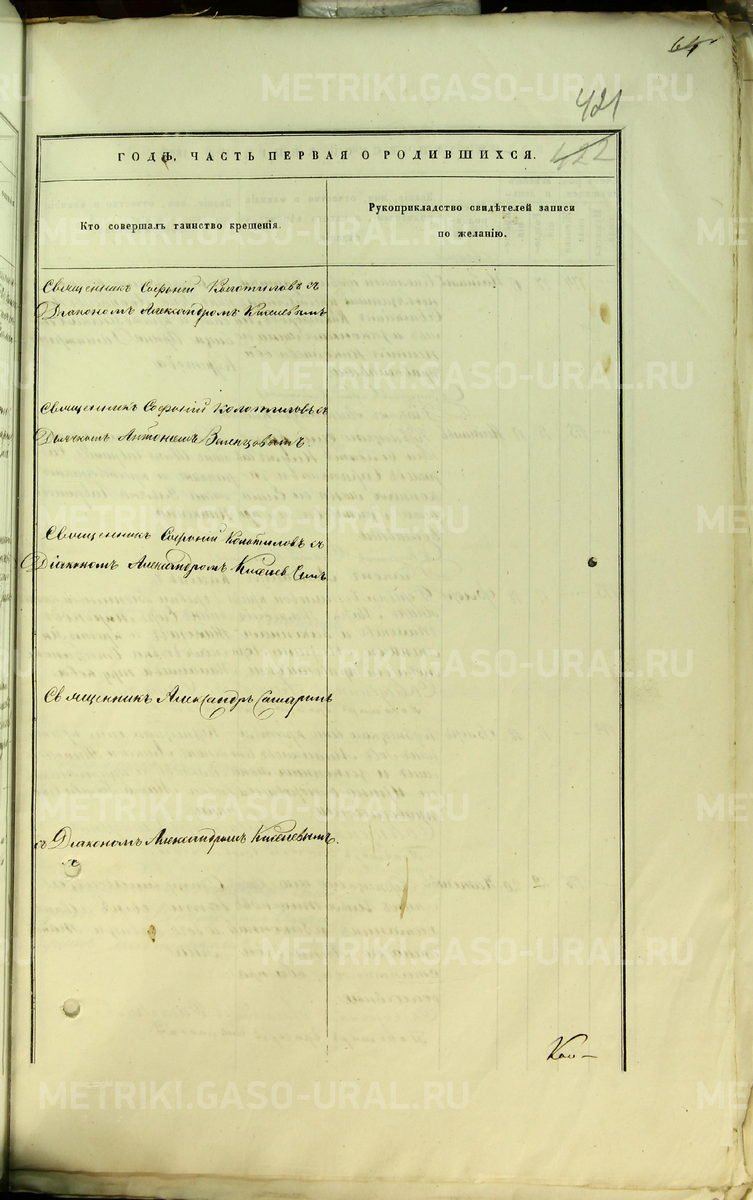 64
421
422
ГОДЪ, ЧАСТЬ ПЕРВАЯ О РОДИВШИХСЯ.
Кто совершалъ таинство крещенія.
Рукоприкладство свидѣтелей записи
по желанію.
Священникъ Софоній Колотиловъ съ
Діакономъ Александромъ Киселевымъ
Священникъ Софоній Колотиловъ съ
Дьячкомъ Антоніемъ
Священникъ Софоній Колотиловъ съ
Діакономъ Александромъ Киселевымъ
Священникъ Александръ
съ Діакономъ Александромъ Киселевымъ.
METRIKI.GASO-URAL.RU